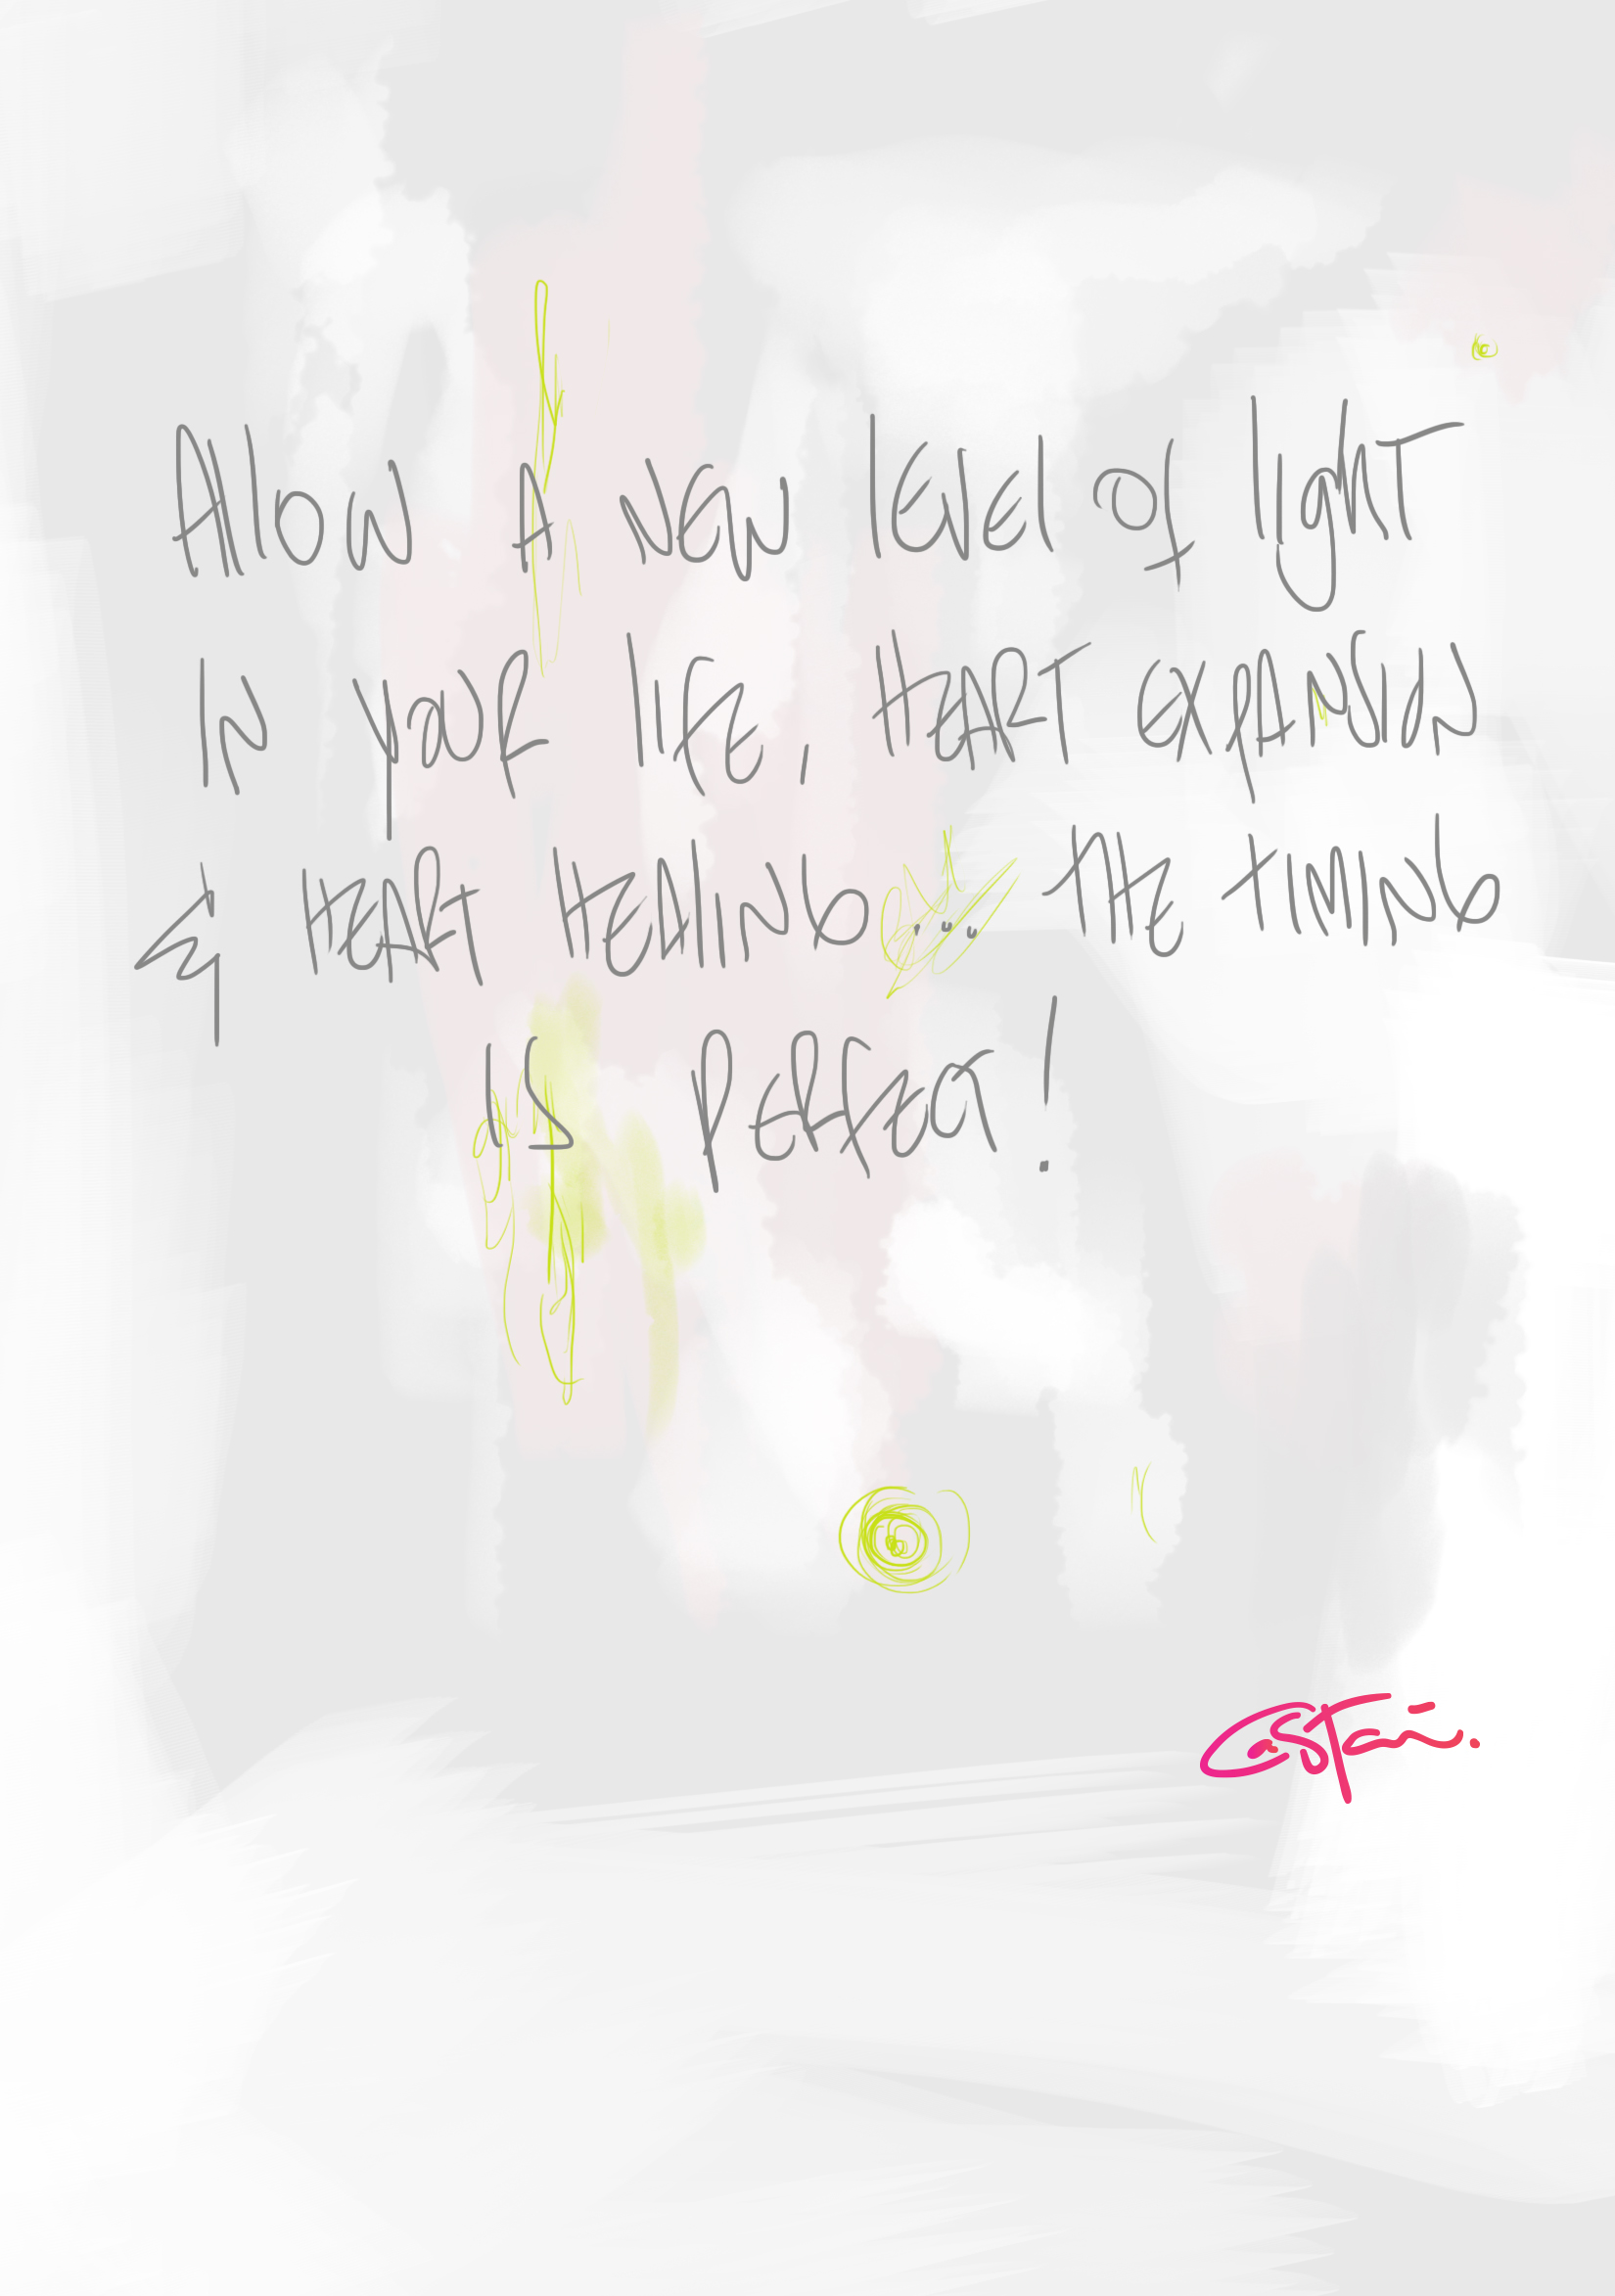 Allow A NEW level of light
IN your life, HEART EXPANSION
& HEART HEALING... THE TIMING
IS PERFECT!